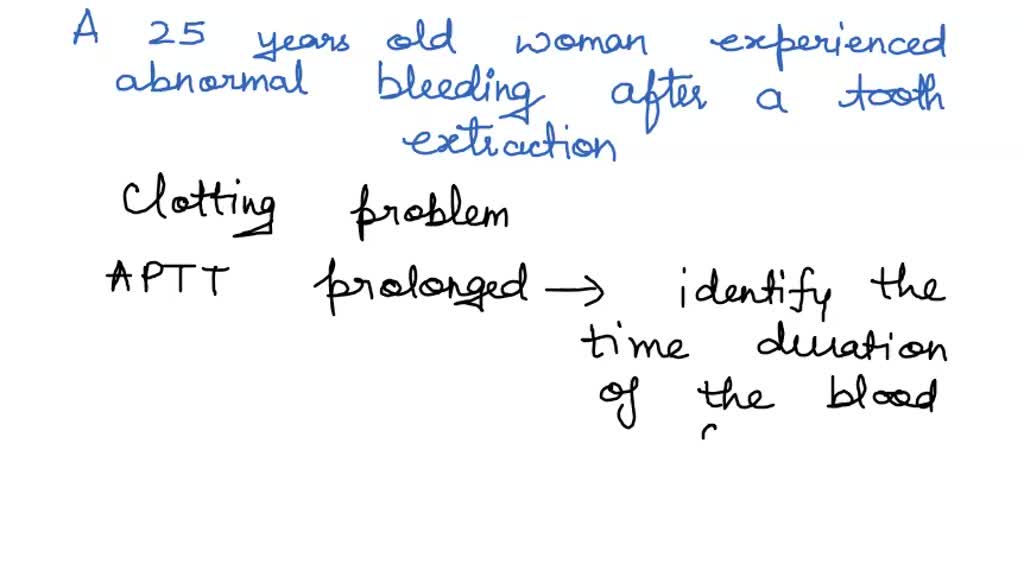 A 25 years old woman experienced
abnormal bleeding after a tooth
extraction
Clotting problem
APTT prolonged → identify the
time duration
of the blood